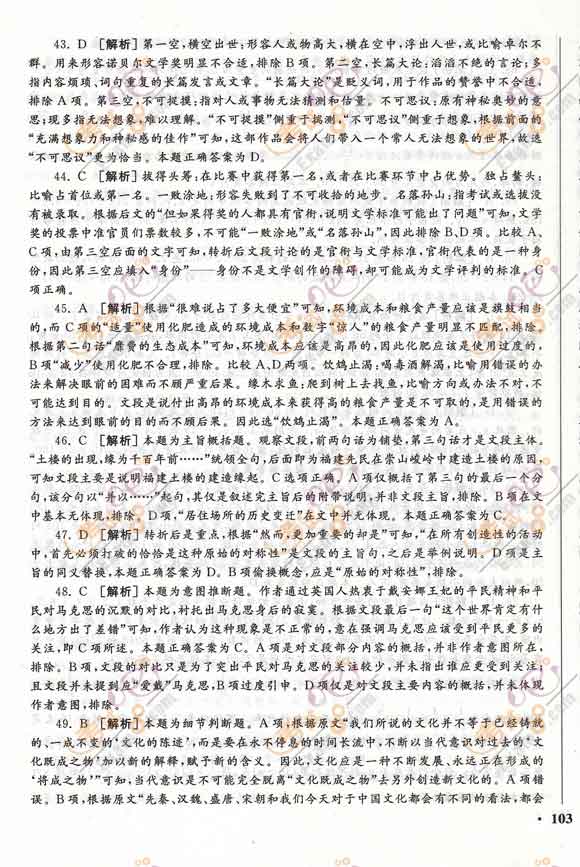 43. D [解析] 第一空,横空出世:形容人或物高大,横在空中,浮出人世,或比喻卓尔不
群。用来形容诺贝尔文学奖明显不合适,排除 B 项。第二空,长篇大论:滔滔不绝的言论;多
指内容烦琐、词句重复的长篇发言或文章。“长篇大论”是贬义词,用于作品的赞誉中不合适,
排除 A 项。第三空,不可捉摸:指对人或事物无法猜测和估量。不可思议:原有神秘奥妙的意
思;现多指无法想象,难以理解。“不可捉摸”侧重于揣测,“不可思议”侧重于想象,根据前面的
“充满想象力和神秘感的佳作”可知,这部作品会将人们带入一个常人无法想象的世界,故选
“不可思议”更为恰当。本题正确答案为 D。
44. C [解析] 拔得头筹:在比赛中获得第一名,或者在比赛环节中占优势。独占鳌头:
比喻占首位或第一名。一败涂地:形容失败到了不可收拾的地步。名落孙山:指考试或选拔没
有被录取。根据后文的“但如果得奖的人都具有官衔,说明文学标准可能出了问题”可知,文学
奖的投票中准官员们票数较多,不可能“一败涂地”或“名落孙山”,因此排除 B、D 项。比较 A、
C 项,由第三空后面的文字可知,转折后文段讨论的是官衔与文学标准,官衔代表的是一种身
份,因此第三空应填入“身份”——身份不是文学创作的障碍,却可能成为文学评判的标准。C
项正确。
45. A [解析] 根据“很难说占了多大便宜”可知,环境成本和粮食产量应该是旗鼓相当
的,而 C 项的“适量”使用化肥造成的环境成本和数字“惊人”的粮食产量明显不匹配,排除。
根据第二句话“糜费的生态成本”可知,环境成本应该是高昂的,因此化肥应该是使用过度的,
B 项“减少”使用化肥不合理,排除。比较 A、D 两项。饮鸩止渴:喝毒酒解渴,比喻用错误的办
法来解决眼前的困难而不顾严重后果。缘木求鱼:爬到树上去找鱼,比喻方向或办法不对,不
可能达到目的。文段是说付出高昂的环境成本来获得高的粮食产量是不可取的,是用错误的
方法来达到眼前的目的而不顾后果。因此选“饮鸩止渴”。本题正确答案为 A。
46. C [解析] 本题为主旨概括题。观察文段,前两句话为铺垫,第三句话才是文段主体。
“土楼的出现,缘为千百年前……”统领全句,后面即为福建先民在崇山峻岭中建造土楼的原因,
可知文段主要是说明福建土楼的建造缘起。C 选项正确。A 项仅概括了第三句的最后一个分
句,该分句以“并以……”起句,其仅是叙述完主旨后的附带说明,并非文段主旨,排除。B 项在文
中基本无体现,排除。D 项,“居住场所的历史变迁”在文中并无体现。本题正确答案为 C。
47. D [解析] 转折后是重点,根据“然而,更加重要的却是”可知,“在所有创造性的活动
中,首先必须打破的恰恰是这种原始的对称性”是文段的主旨句,之后是举例说明。D 项是主
旨的同义替换,本题正确答案为 D。B 项偷换概念,应是“原始的对称性”,排除。
48. C [解析] 本题为意图推断题。作者通过英国人热衷于戴安娜王妃的平民精神和平
民对马克思的沉默的对比,衬托出马克思身后的寂寞。根据文段最后一句“这个世界肯定有什
么地方出了差错”可知,作者认为这种现象是不正常的,意在强调马克思应该受到平民更多的
关注,即 C 项所述。本题正确答案为 C。A 项是对文段部分内容的概括,并非作者意图所在,
排除。B 项,文段的对比只是为了突出平民对马克思的关注较少,并未指出谁应更受到关注;
且文段并未提到应“爱戴”马克思,B 项过度引申。D 项仅是对文段主要内容的概括,并未体现
作者意图,排除。
49. B [解析] 本题为细节判断题。A 项,根据原文“我们所说的文化并不等于已经铸就
的、一成不变的‘文化的陈述’,而是要在永不停息的时间长流中,不断以当代意识对过去的‘文
化既成之物’加以新的解释,赋予新的含义。因此,文化应是一种不断发展、永远正在形成的
‘将成之物’”可知,当代意识是不可能完全脱离“文化既成之物”去另外创造新文化的。A 项错
误。B 项,根据原文“先秦、汉魏、盛唐、宋朝和我们今天对于中国文化都会有不同的看法,都会
· 103